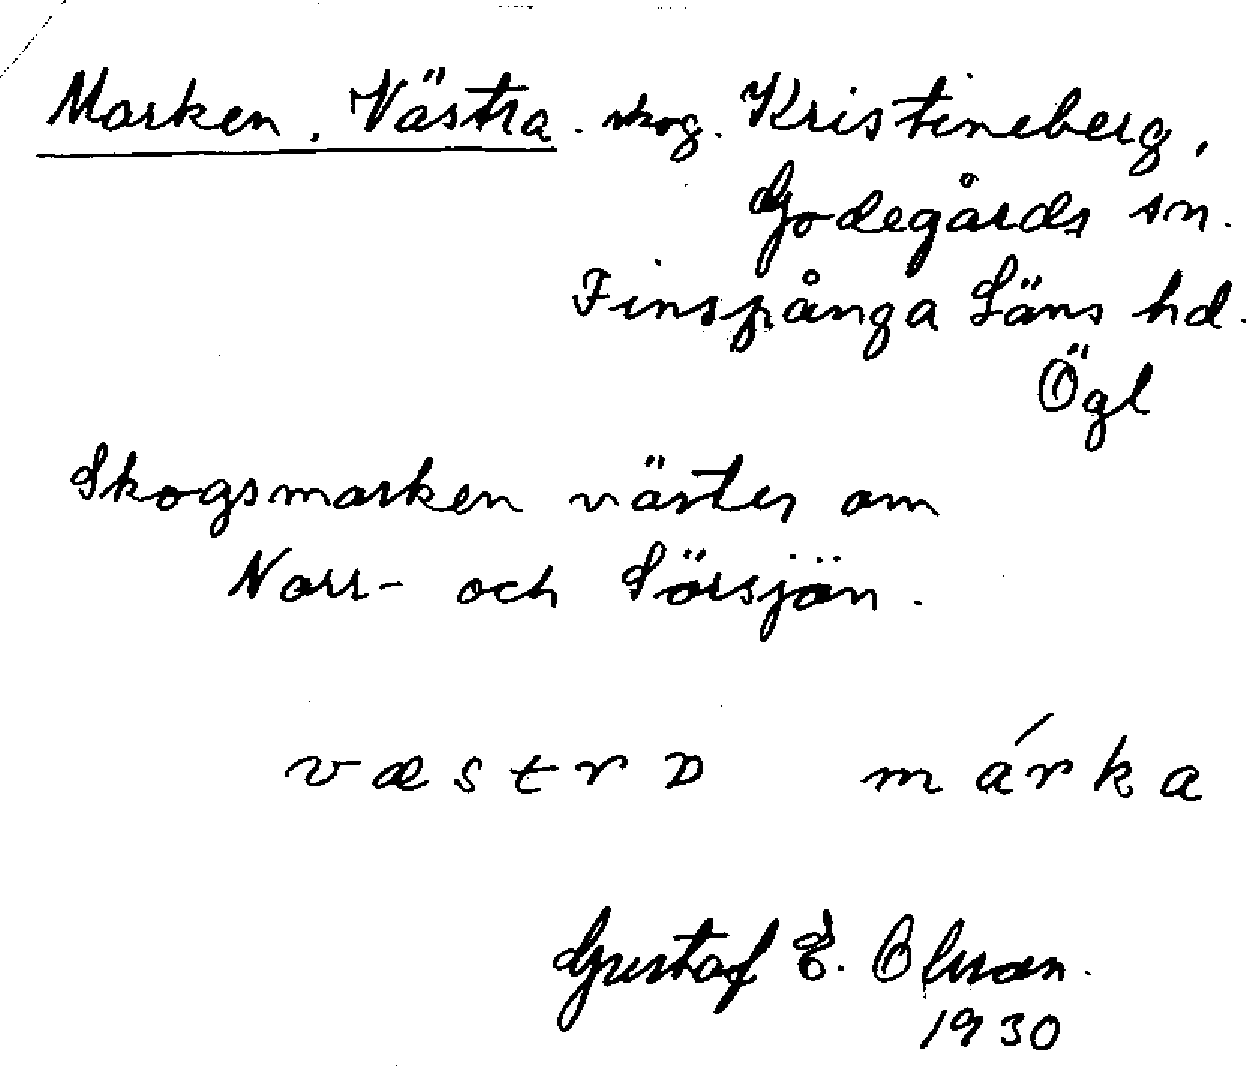 Marken, Västra. skog. Kristineberg,
Godegårds sn.
Finspånga Läns hd.
Ögl
Skogsmarken väster om
Norr- och Sörsjön.
væstrɒ márka
Gustaf E. Olsson.
1930